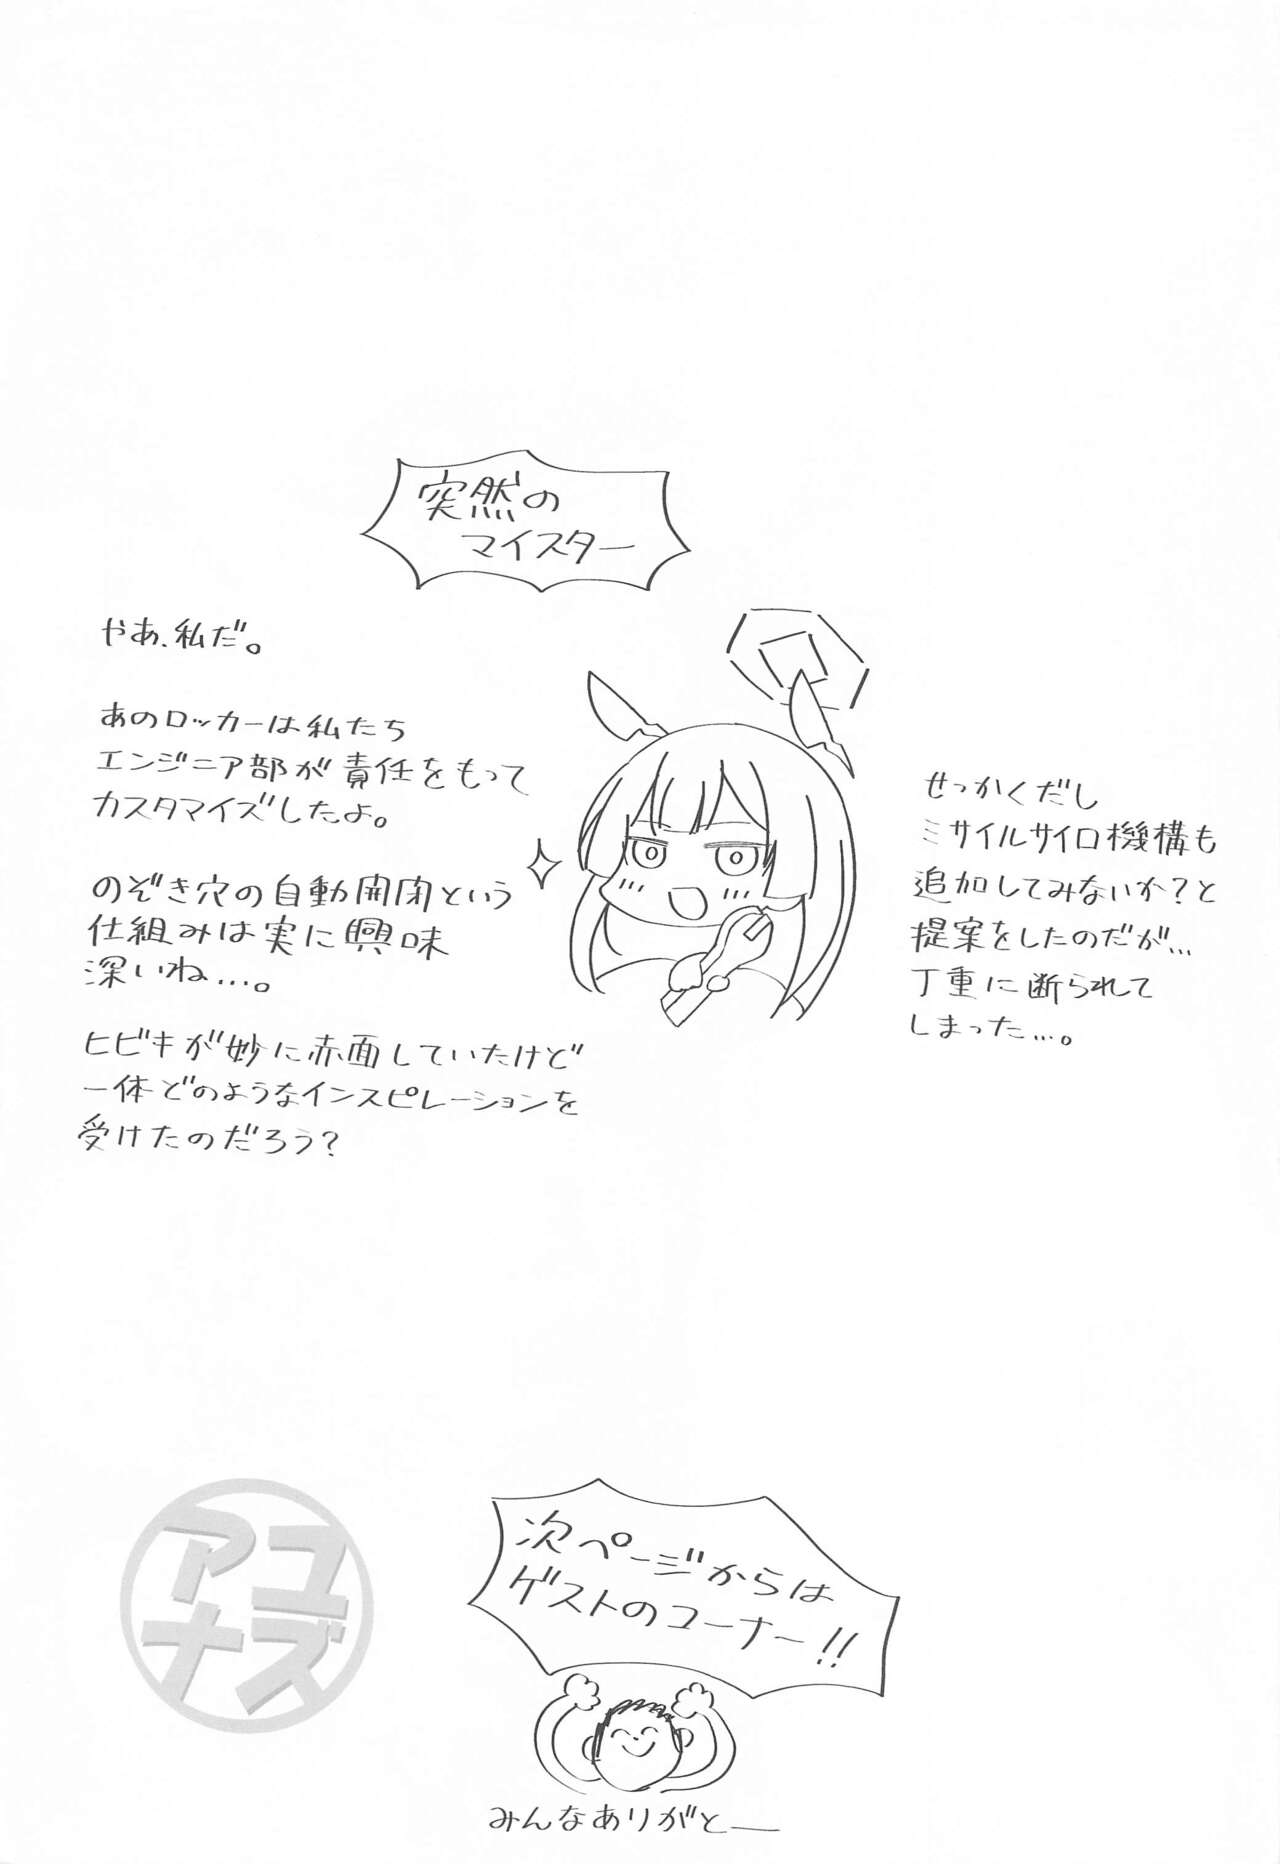 突然の
マイスター
やあ、私だ。
あのロッカーは私たち
エンジニア部が責任をもって
カスタマイズしたよ。
のぞき穴の自動開閉という
仕組みは実に興味
深いね…。
ヒビキが妙に赤面していたけど
一体どのようなインスピレーションを
受けたのだろう?
せっかくだし
ミサイルサイロ機構も
追加してみないか?と
提案をしたのだが…
丁重に断られて
しまった…。
アユ
ナズ
次ページからは
ゲストのコーナー!!
みんなありがとー